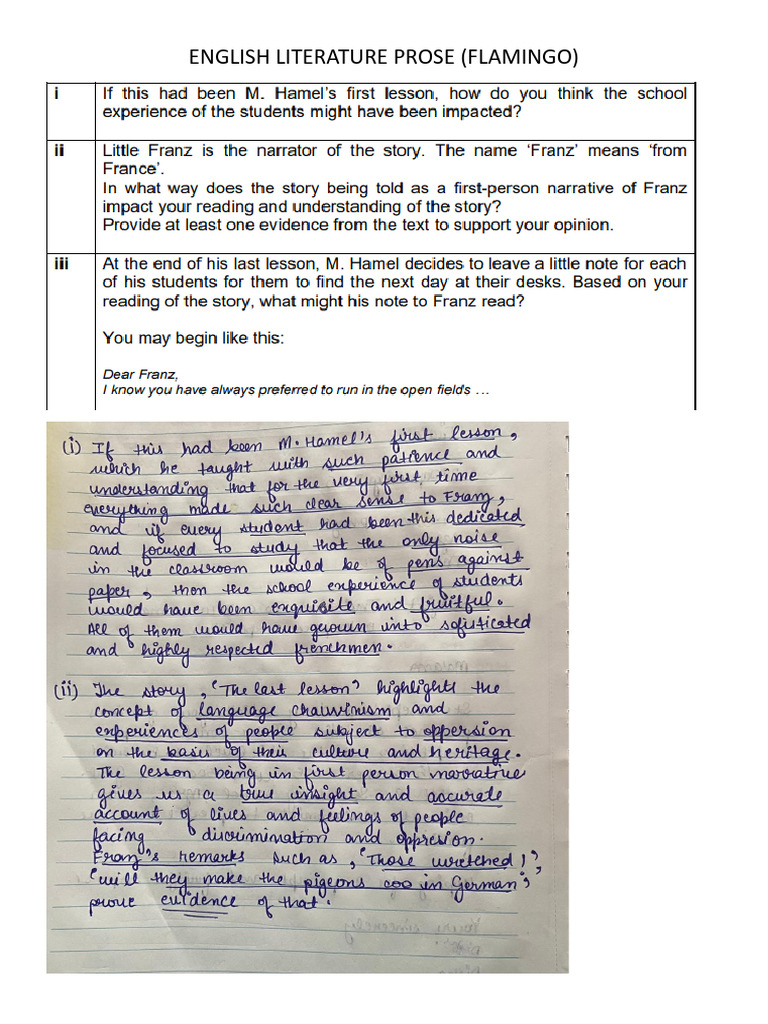 ENGLISH LITERATURE PROSE (FLAMINGO)
i If this had been M. Hamel's first lesson, how do you think the school
experience of the students might have been impacted?
ii Little Franz is the narrator of the story. The name 'Franz' means 'from
France'.
In what way does the story being told as a first-person narrative of Franz
impact your reading and understanding of the story?
Provide at least one evidence from the text to support your opinion.
iii At the end of his last lesson, M. Hamel decides to leave a little note for each
of his students for them to find the next day at their desks. Based on your
reading of the story, what might his note to Franz read?
You may begin like this:
Dear Franz,
I know you have always preferred to run in the open fields …
(i) If this had been M. Hamel's first lesson,
which he taught with such patience and
understanding that for the very first time
everything made such clear sense to Franz,
and if every student had been this dedicated
and focused to study that the only noise
in the classroom would be of pens against
paper, then the school experience of students
would have been exquisite and fruitful.
All of them would have grown into sofisticated
and highly respected frenchmen.
(ii) The story, 'The last lesson' highlights the
concept of language chauvinism and
experiences of people subject to oppersion
on the basis of their culture and heritage.
The lesson being in first person narrative
gives us a true insight and accurate
account of lives and feelings of people
facing discrimination and oppresion.
Franz's remarks such as, 'Those wretched!',
'will they make the pigeons coo in German',
prove evidence of that.